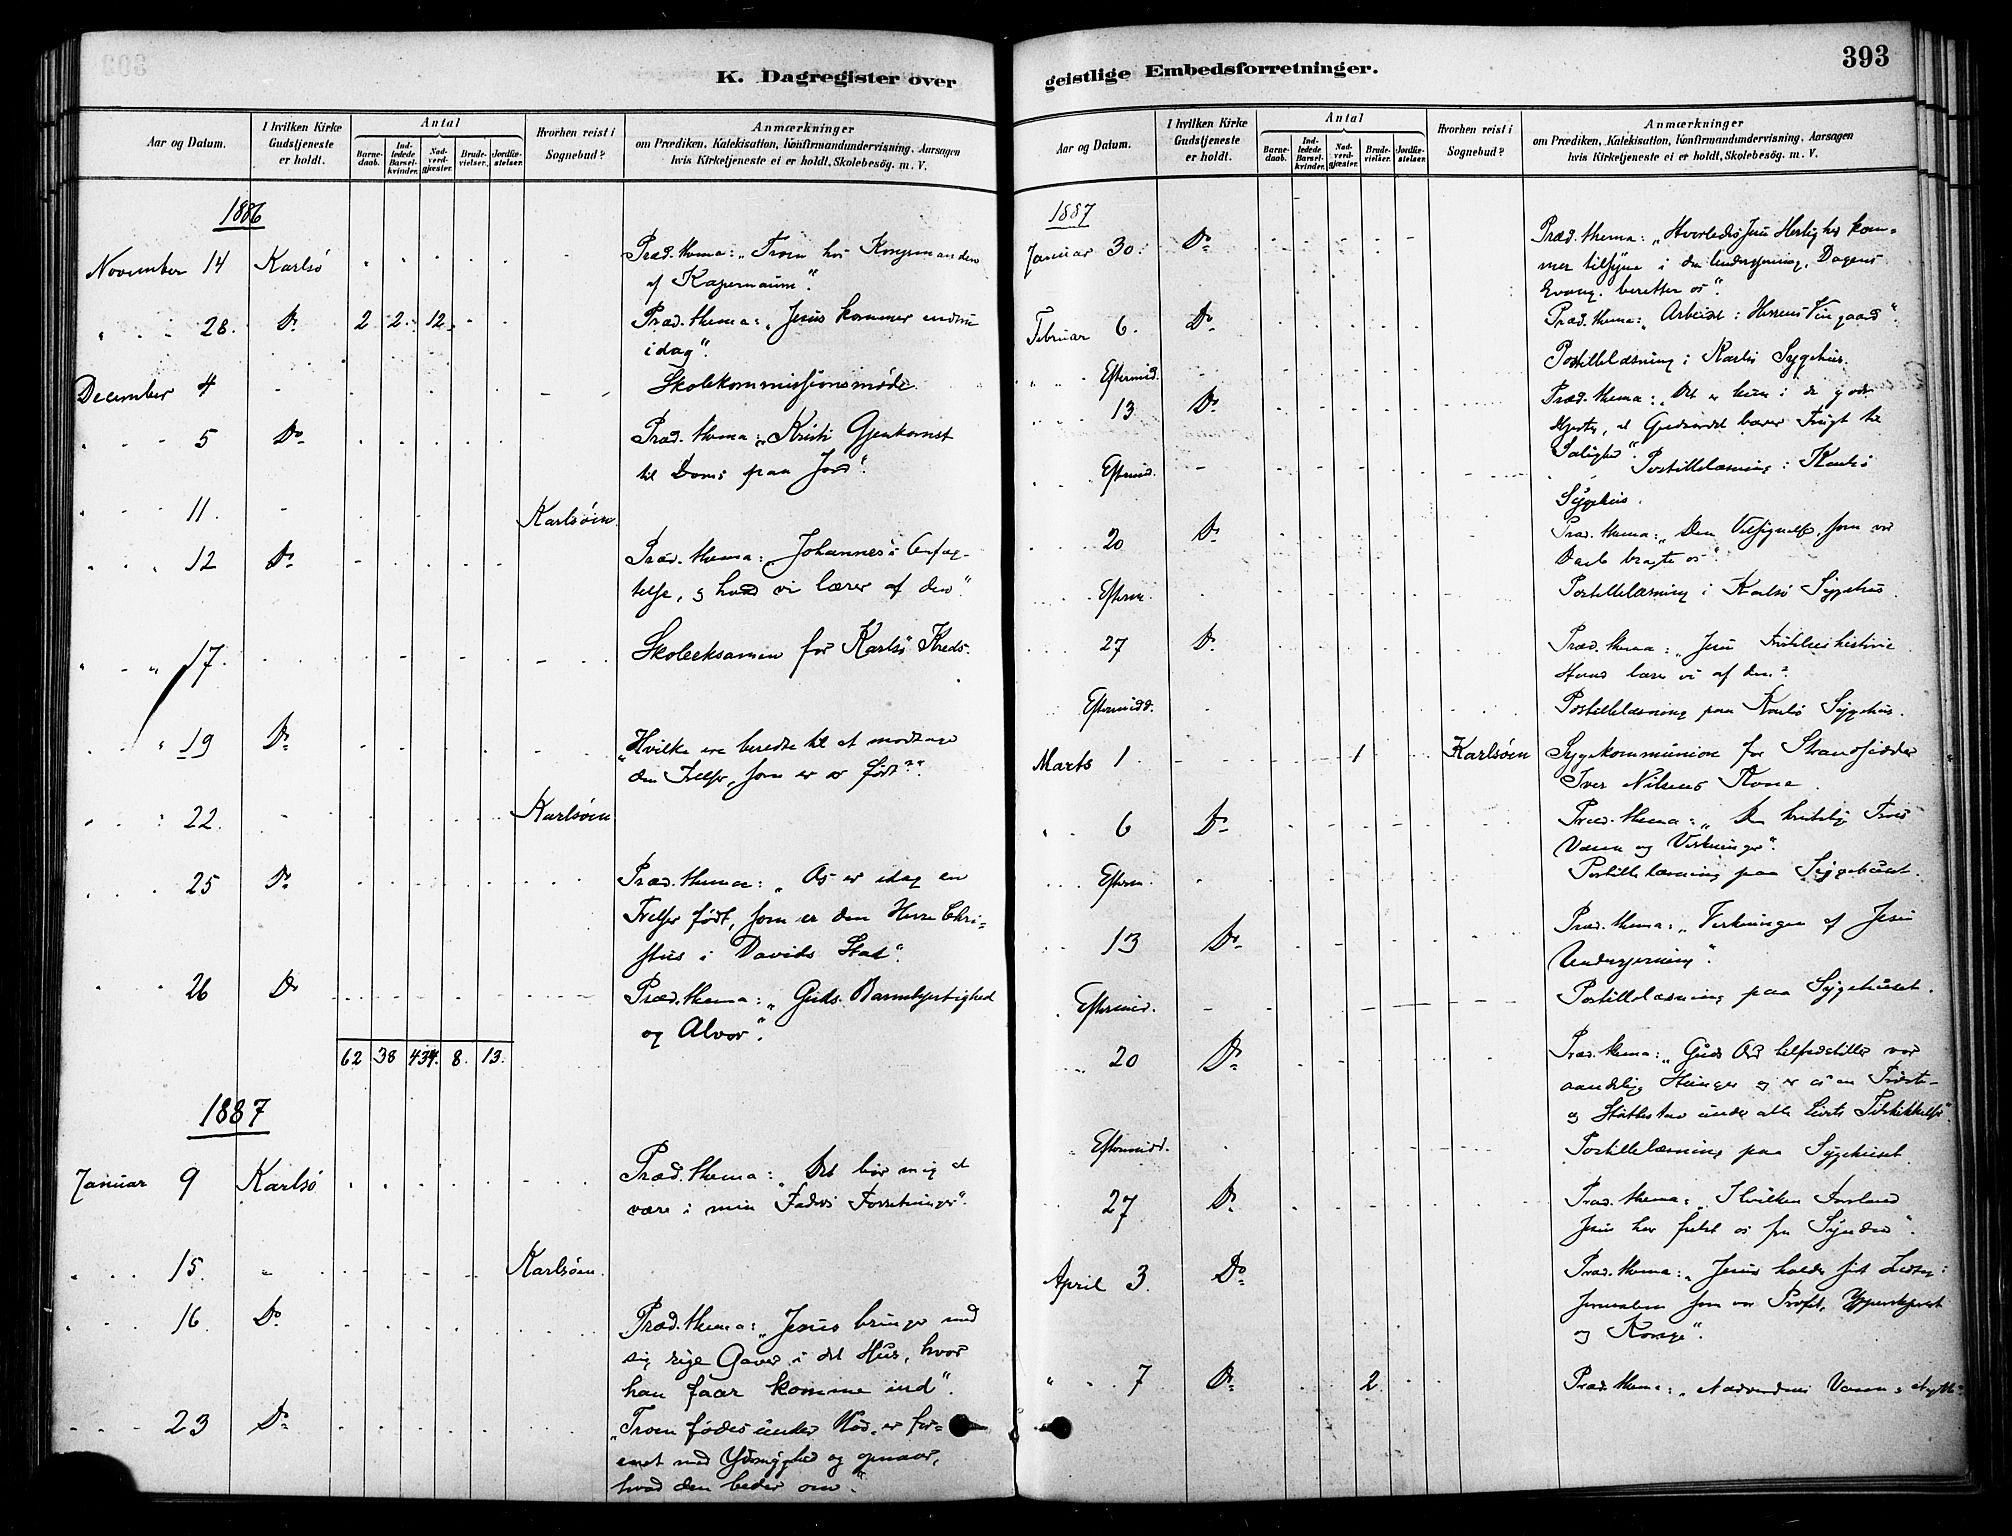 K. Dagregister over
Aar og Datum.
I hvilken Kirke Gudstjeneste er holdt.
Antal
Barnedaab.
Indledede Barselkvinder.
Nadverdgjæster.
Brudevielser.
Jordfæstelser.
Hvorhen reist i Sognebud?
Anmærkninger
om Prædiken, Katekisation, Konfirmandundervisning, Aarsagen
hvis Kirketjeneste ei er holdt, Skolebesög. m. V.
1886
November 14 Karlsö Præd. thema: „Troen hos Kongemanden
af Kapernaum“.
28. Do 2 2 12 Præd. thema: „Jesus kommer endnu
idag“.
December 4 Skolekommissionsmöde
5 Do Præd. thema: „Kristi Gjenkomst
til Dom paa Jord“.
11. Karlsöen
12 Do Præd. thema: „Johannes's Anfægtelse,
og hvad vi lærer af den“.
17. Skoleeksamen for Karlsö Kreds.
19 Do „Hvilke ere beredte til at modtage
den Frelser, som er os født?“
22. Karlsöen
25 Do Præd. thema: „Os er idag en
Frelser født, som er den Herre Christus
i Davids Stad“.
26 Do Præd. thema: „Guds Barmhjertighed
og Alvor“.
62 38 434. 8. 13.
1887
Januar 9 Karlsö Præd. thema: „Det bör mig at
være i min Faders Forretninger“.
15. Karlsöen.
16. Do Præd. thema: „Jesus bringer med
sig rige Gaver i det Hus, hvor
han faar komme ind“.
23 Do „Troen födes under Nöd, er forenet
med Ydmyghed og opnaar,
hvad den beder om“.
geistlige Embedsforretninger.
393
Aar og Datum.
I hvilken Kirke Gudstjeneste er holdt.
Antal
Barnedaab.
Indledede Barselkvinder.
Nadverdgjæster.
Brudevielser.
Jordfæstelser.
Hvorhen reist i Sognebud?
Anmærkninger
om Prædiken, Katekisation, Konfirmandundervisning, Aarsagen
hvis Kirketjeneste ei er holdt, Skolebesög. m. V.
1887
Januar 30. Do Præd. thema: „Hvorledes Jesu Herlighed kommer
tilsyne i den Undergjerning, Dagens
Evang. beretter os“.
Februar 6. Do Præd. thema: „Arbeidet i Herrens Vingaard“.
Eftermid. Postillelæsning i Karlsö Sygehus.
13 Do Præd. thema: „Det er kun i de gode
Hjerter, at Gudsordet bærer Frugt til
Salighed“.
Eftermid. Postillelæsning i Karlsö
Sygehus.
20 Do Præd. thema: „Den Velsignelse, som vor
Daab bragte os“.
Efterm. Postillelæsning i Karlsö Sygehus.
27 Do Præd. thema: „Jesu Fristelseshistorie.
Hvad lære vi af den?
Eftermidd. Postillelæsning paa Karlsö Sygehus.
Marts 1. 1 Karlsöen Sygekommunion for Strandsidder
Iver Nilsens Kone.
6 Do Præd. thema: „Den Troes
Væsen og Virkninger“.
Efterm. Postillelæsning paa Sygehuset.
13 Do Præd. thema: „Virkningen af Jesu
Undergjerning“.
Eftermid. Postillelæsning paa Sygehuset.
20 Do Præd. thema: „Guds Ord tilfredsstiller vor
aandelig Hunger og er os en Tröste-
og Stöttestav under alle Livets Tilskikkelser“.
Eftermidd. Postillelæsning paa Sygehuset.
27 Do Præd. thema: „I hvilken Forstand
Jesu har frelst os fra Synden“.
April 3. Do Præd. thema: „Jesus holder sit Indtog i
Jerusalem som vor Profet, Ypperstepræst
og Konge“.
7 Do 2 Præd. thema: „Nadverdens Væsen og Nytte“